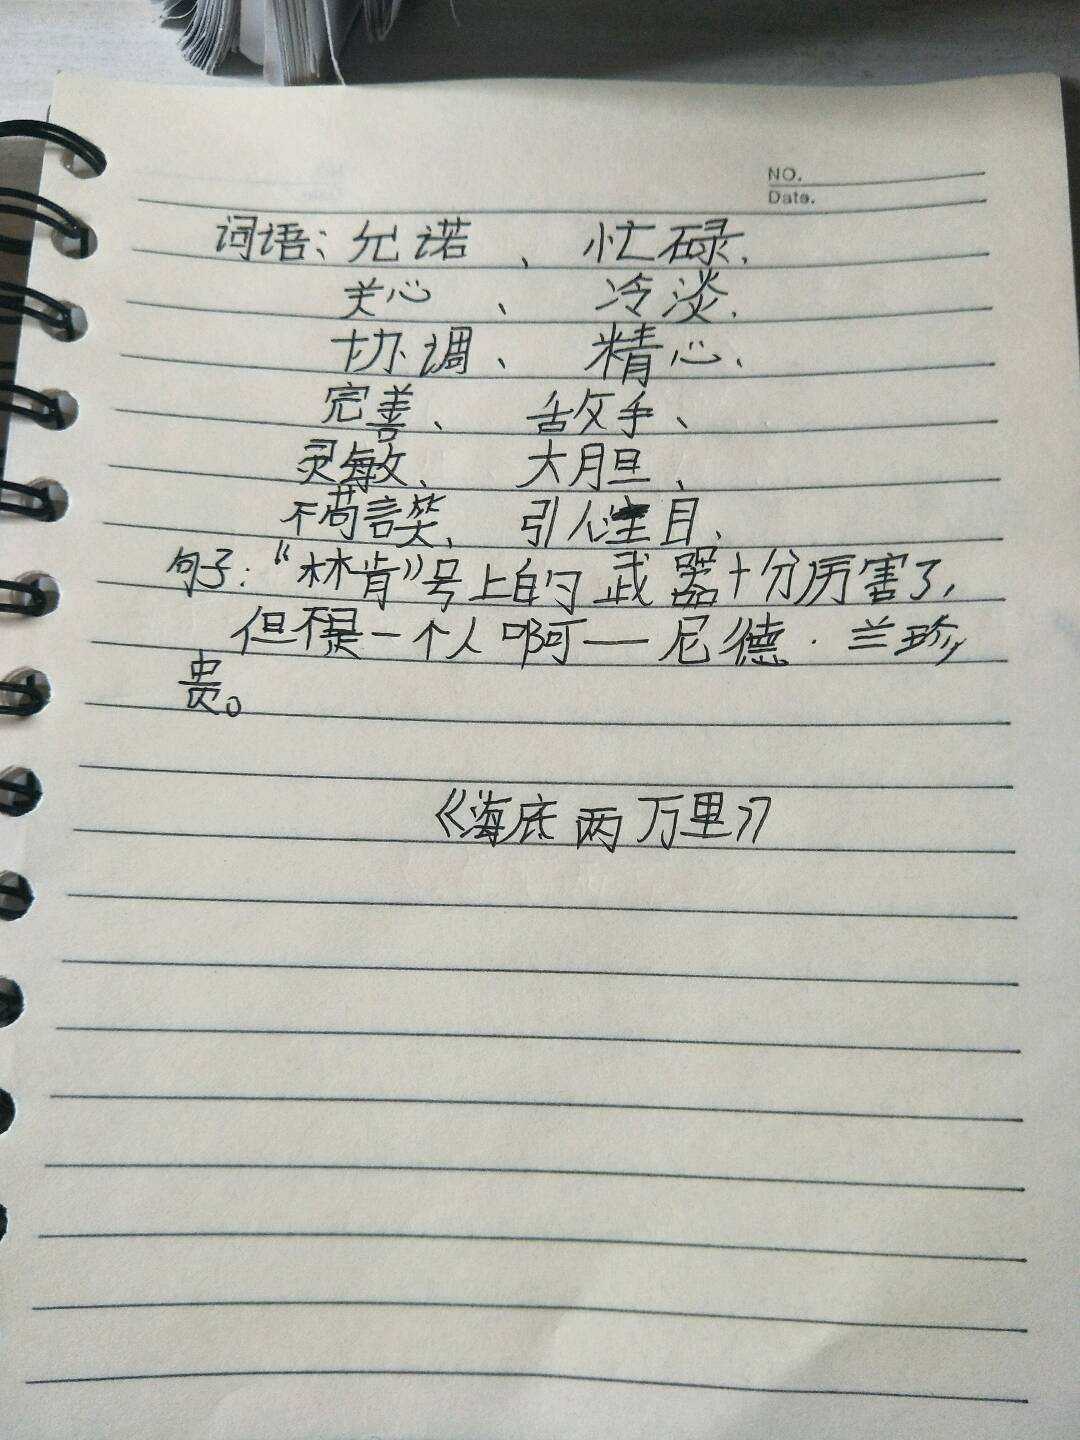 NO.
Date.
词语：允诺、 忙碌、
关心、 冷淡、
协调、 精心、
完善、 敌手、
灵敏、 大胆、
不苟言笑、 引人注目、
句子：“林肯”号上的武器十分厉害了，
但不是一个人啊——尼德·兰珍
贵。
《海底两万里》